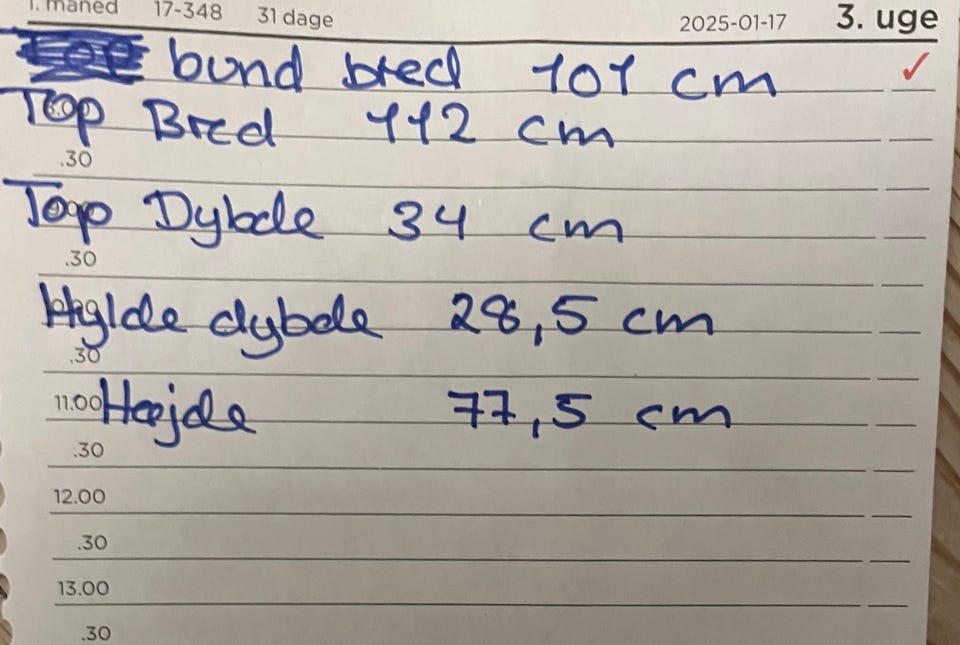 1. måned 17-348 31 dage 2025-01-17 3. uge
bund bred 101 cm ✓
Top Bred 112 cm
.30
Top Dybde 34 cm
.30
Hylde dybde 28,5 cm
.30
11.00 Højde 77,5 cm
.30
12.00
.30
13.00
.30